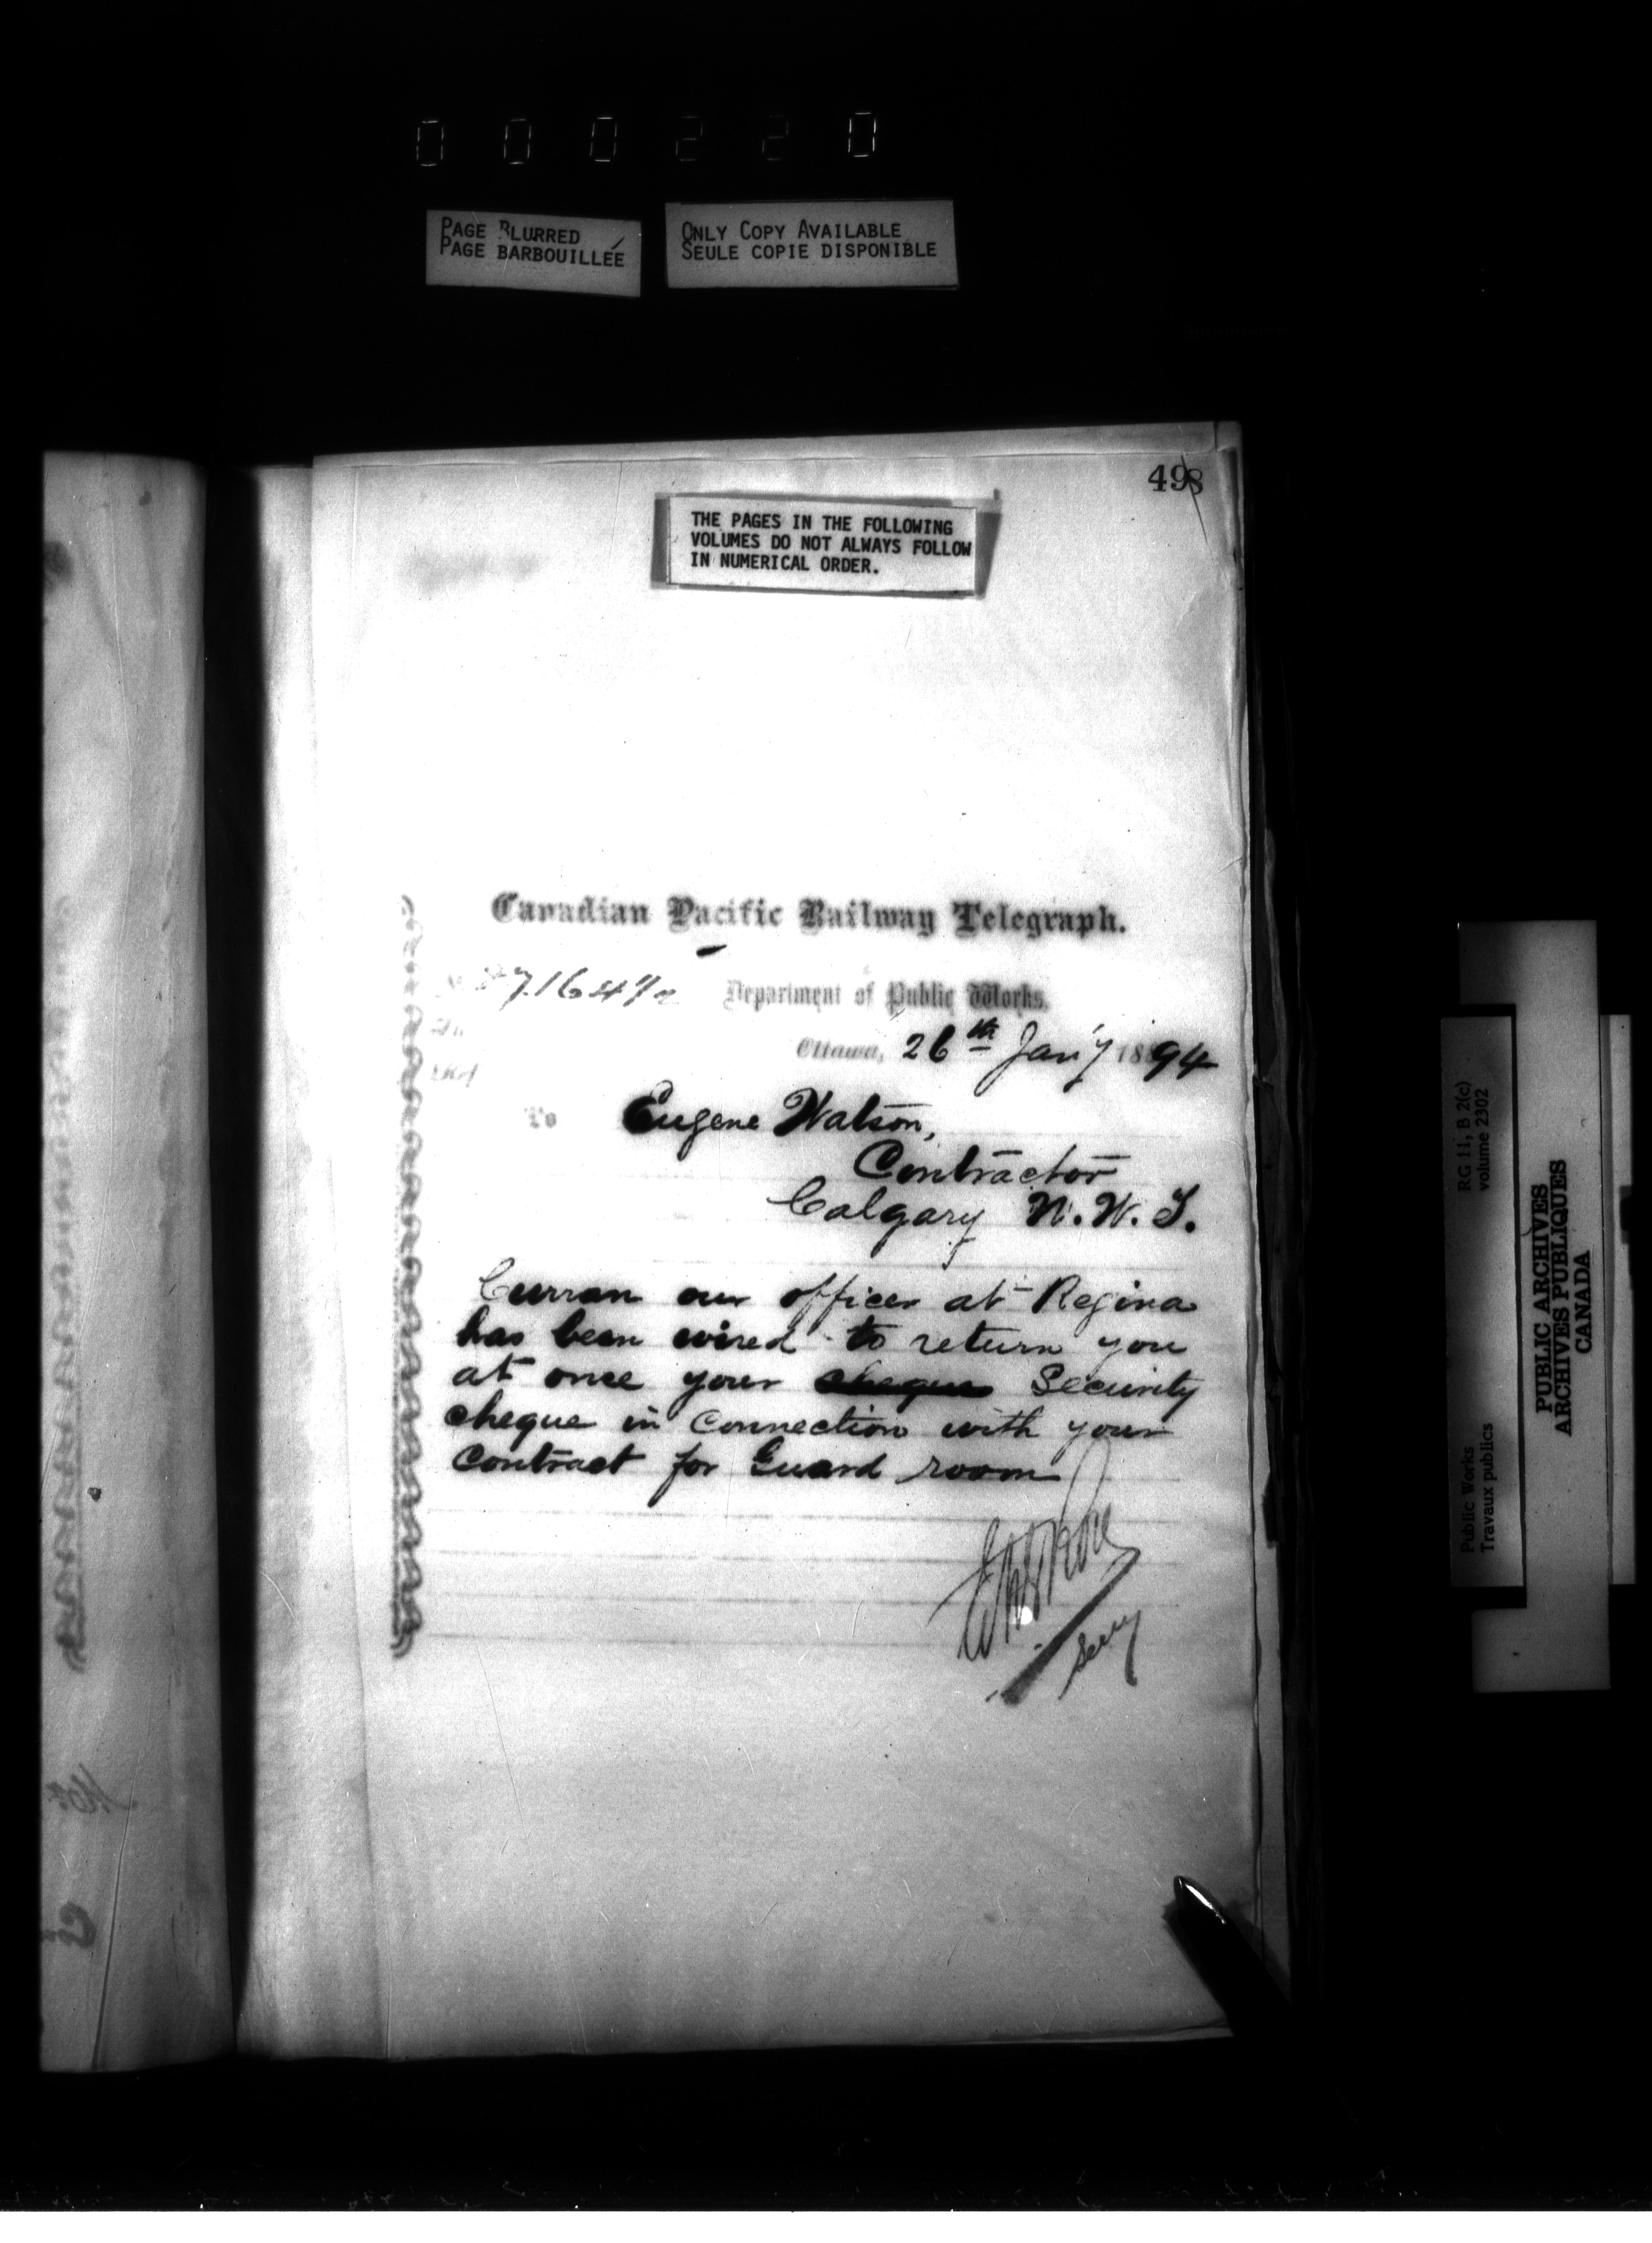 000220
PAGE BLURRED
PAGE BARBOUILLÉE
ONLY COPY AVAILABLE
SEULE COPIE DISPONIBLE
498
THE PAGES IN THE FOLLOWING
VOLUMES DO NOT ALWAYS FOLLOW
IN NUMERICAL ORDER.
Canadian Pacific Railway Telegraph.
Department of Public Works.
Ottawa, 26th Jan'y 1894
To Eugene Watson,
Contractor
Calgary N.W.T.
Curran our officer at Regina
has been wired to return you
at once your cheque Security
cheque in connection with your
contract for Guard room
Secy
RG 11, B 2(c)
volume 2302
Public Works
Travaux publics
PUBLIC ARCHIVES
ARCHIVES PUBLIQUES
CANADA